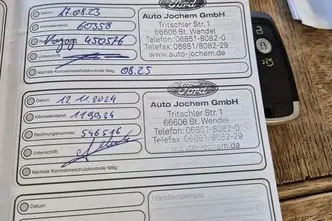 17.08.23
60358
450576
08.25
Ford
Auto Jochem GmbH
Tritschler Str. 1
66606 St. Wendel
Telefon: 06851-8082-0
Telefax: 06851-8082-29
www.auto-jochem.de
Datum:
12.11.2024
Kilometerstand:
119934
Rechnungsnummer:
546516
Unterschrift:
Nächste Korrosionsschutzkontrolle fällig:
Ford
Auto Jochem GmbH
Tritschler Str. 1
66606 St. Wendel
Telefon: 06851-8082-0
Telefax: 06851-8082-29
www.auto-jochem.de
Datum:
Händlerstempel